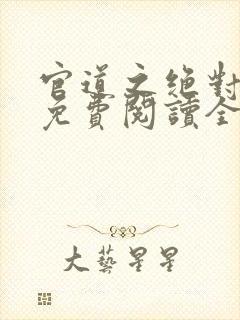 官道之绝對
免費閱讀全
大藝星星